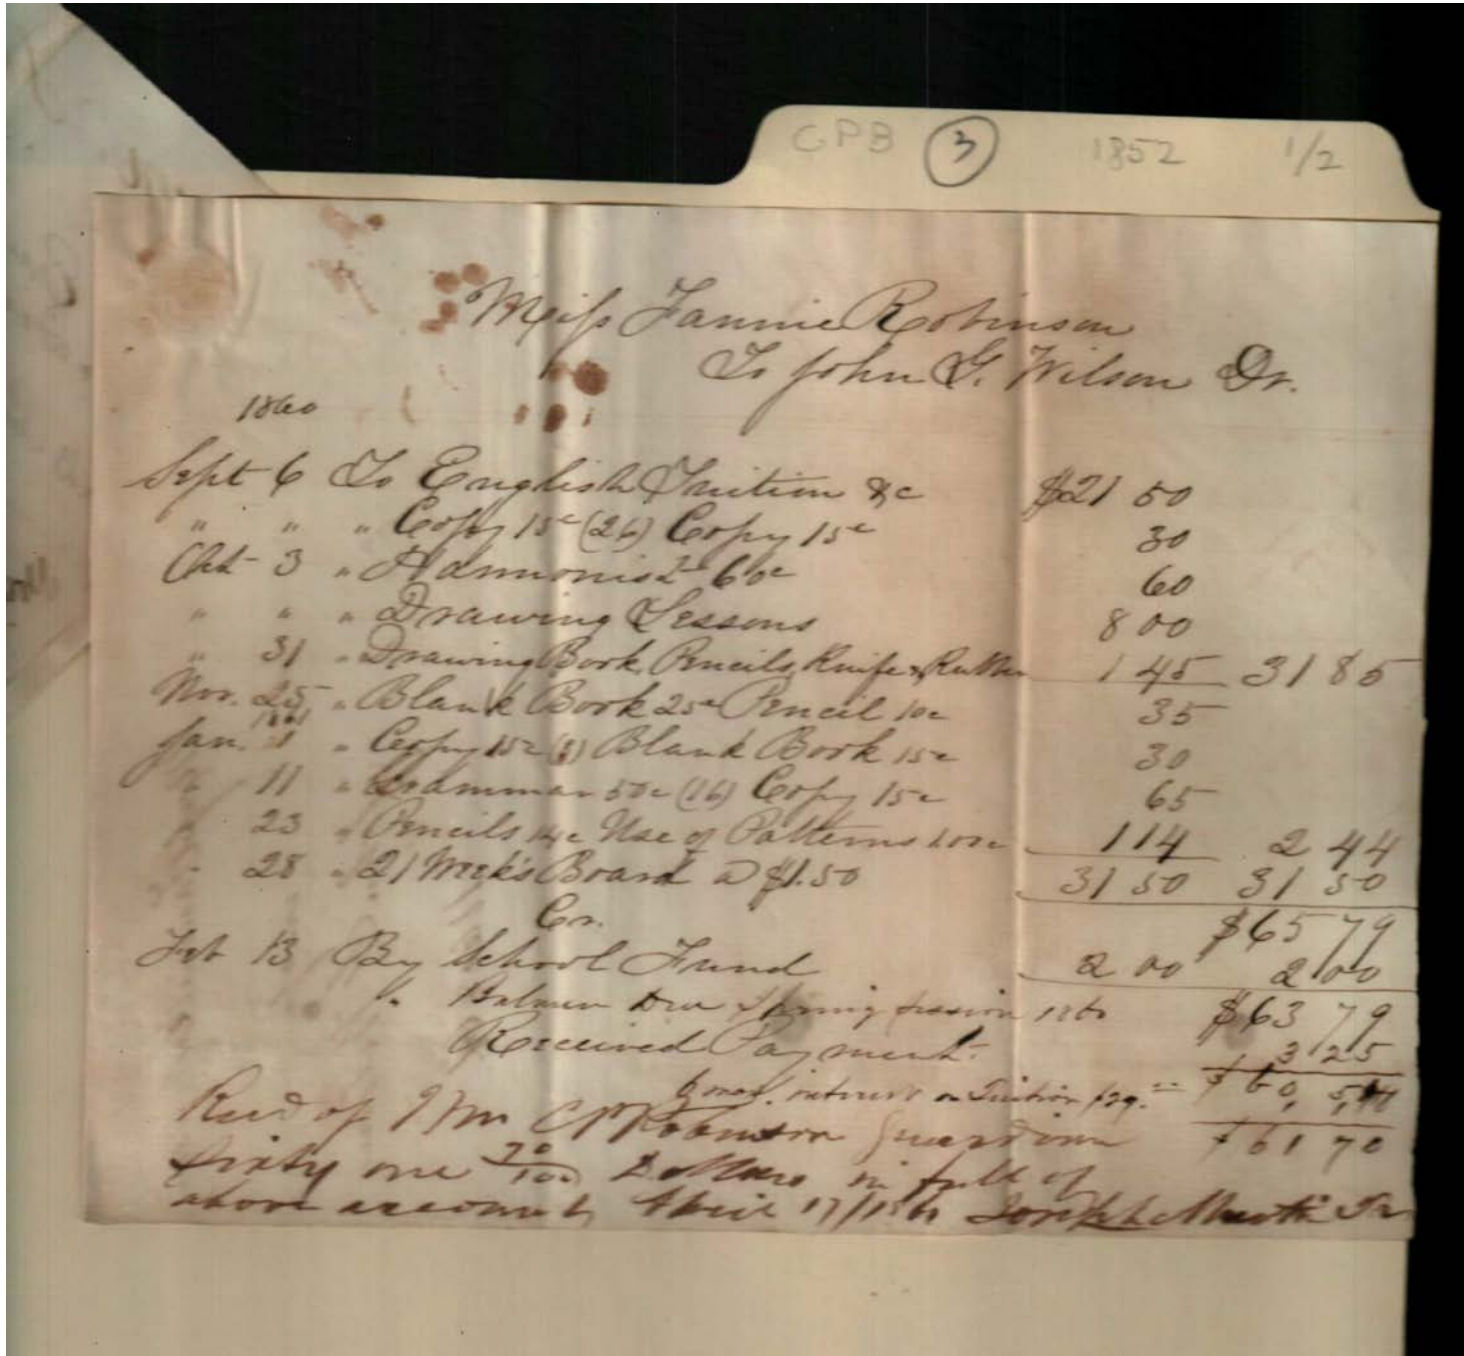 CPB 3 1852 1/2
Miss Fannie Robinson
To John G. Wilson Dr.
1860
Sept 6 To English Tuition &c $21 50
" " " Copy 15c (26) Copy 15c 30
Oct 3 " 60c 60
" " " Drawing Lessons 8 00
" 31 " Drawing Book, Pencils, Knife & Rubber 1 45 31 85
Nov. 25 " Blank Book 25c Pencil 10c 35
1861
Jan. 1 " Copy 15c (8) Blank Book 15c 30
" 11 " Grammar 50c (16) Copy 15c 65
" 23 " Pencils 14c Use of Patterns 100c 1 14 2 44
" 28 " 21 Week's Board @ $1.50 31 50 31 50
Cr. $65 79
Feb 13 By School Fund 2 00 2 00
" Due Spring session 1860 $63 79
Received Payment. 3 25
6 mos. interest on Tuition $29.00 $60 54
Recd of Wm Robinson Guardian $61 70
Sixty one 70/100 Dollars in full of
above account April 17/1861 Joseph